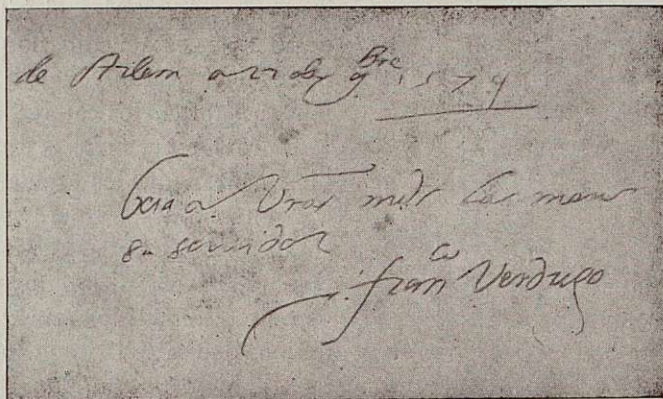 de Arlem a 22 de 9bre 1574
besa a Vras mds las manos
su servidor
franco Verdugo